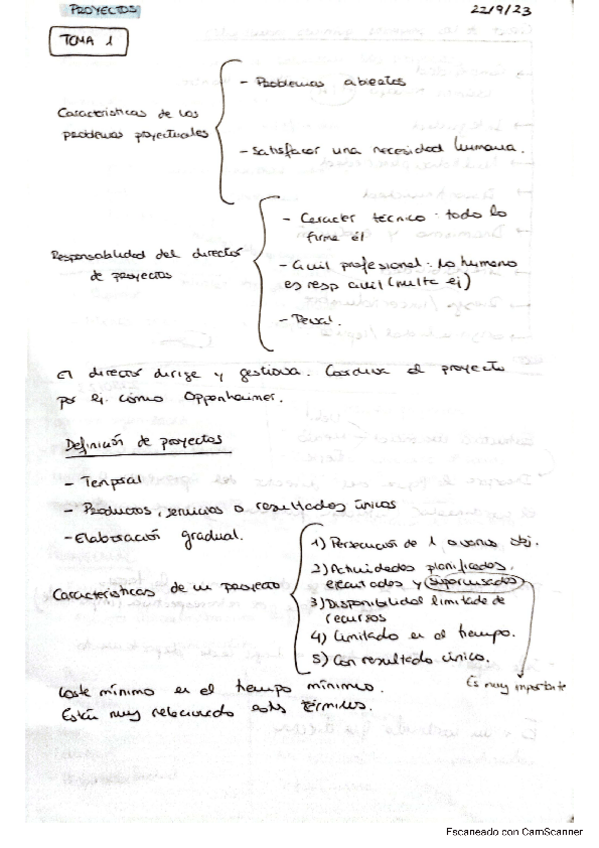 PROYECTOS
22/9/23
TEMA 1
Características de los
problemas proyectuales
- Problemas abiertos
- Satisfacer una necesidad humana.
Responsabilidad del director
de proyectos
- Caracter técnico: todo lo
firma él
- Civil profesional: lo humano
es resp civil (multa ej)
- Penal.
El director dirige y gestiona. Coordina el proyecto
por ej. cómo Oppenheimer.
Definición de proyectos
- Temporal
- Productos, servicios o resultados únicos
- Elaboración gradual.
Características de un proyecto
1) Persecución de 1 o varios obj.
2) Actividades planificadas,
ejecutadas y supervisadas
3) Disponibilidad limitada de
recursos
4) Limitado en el tiempo.
5) Con resultado único.
Es muy importante
Coste mínimo en el tiempo mínimo.
Están muy relacionado estos términos.
Escaneado con CamScanner